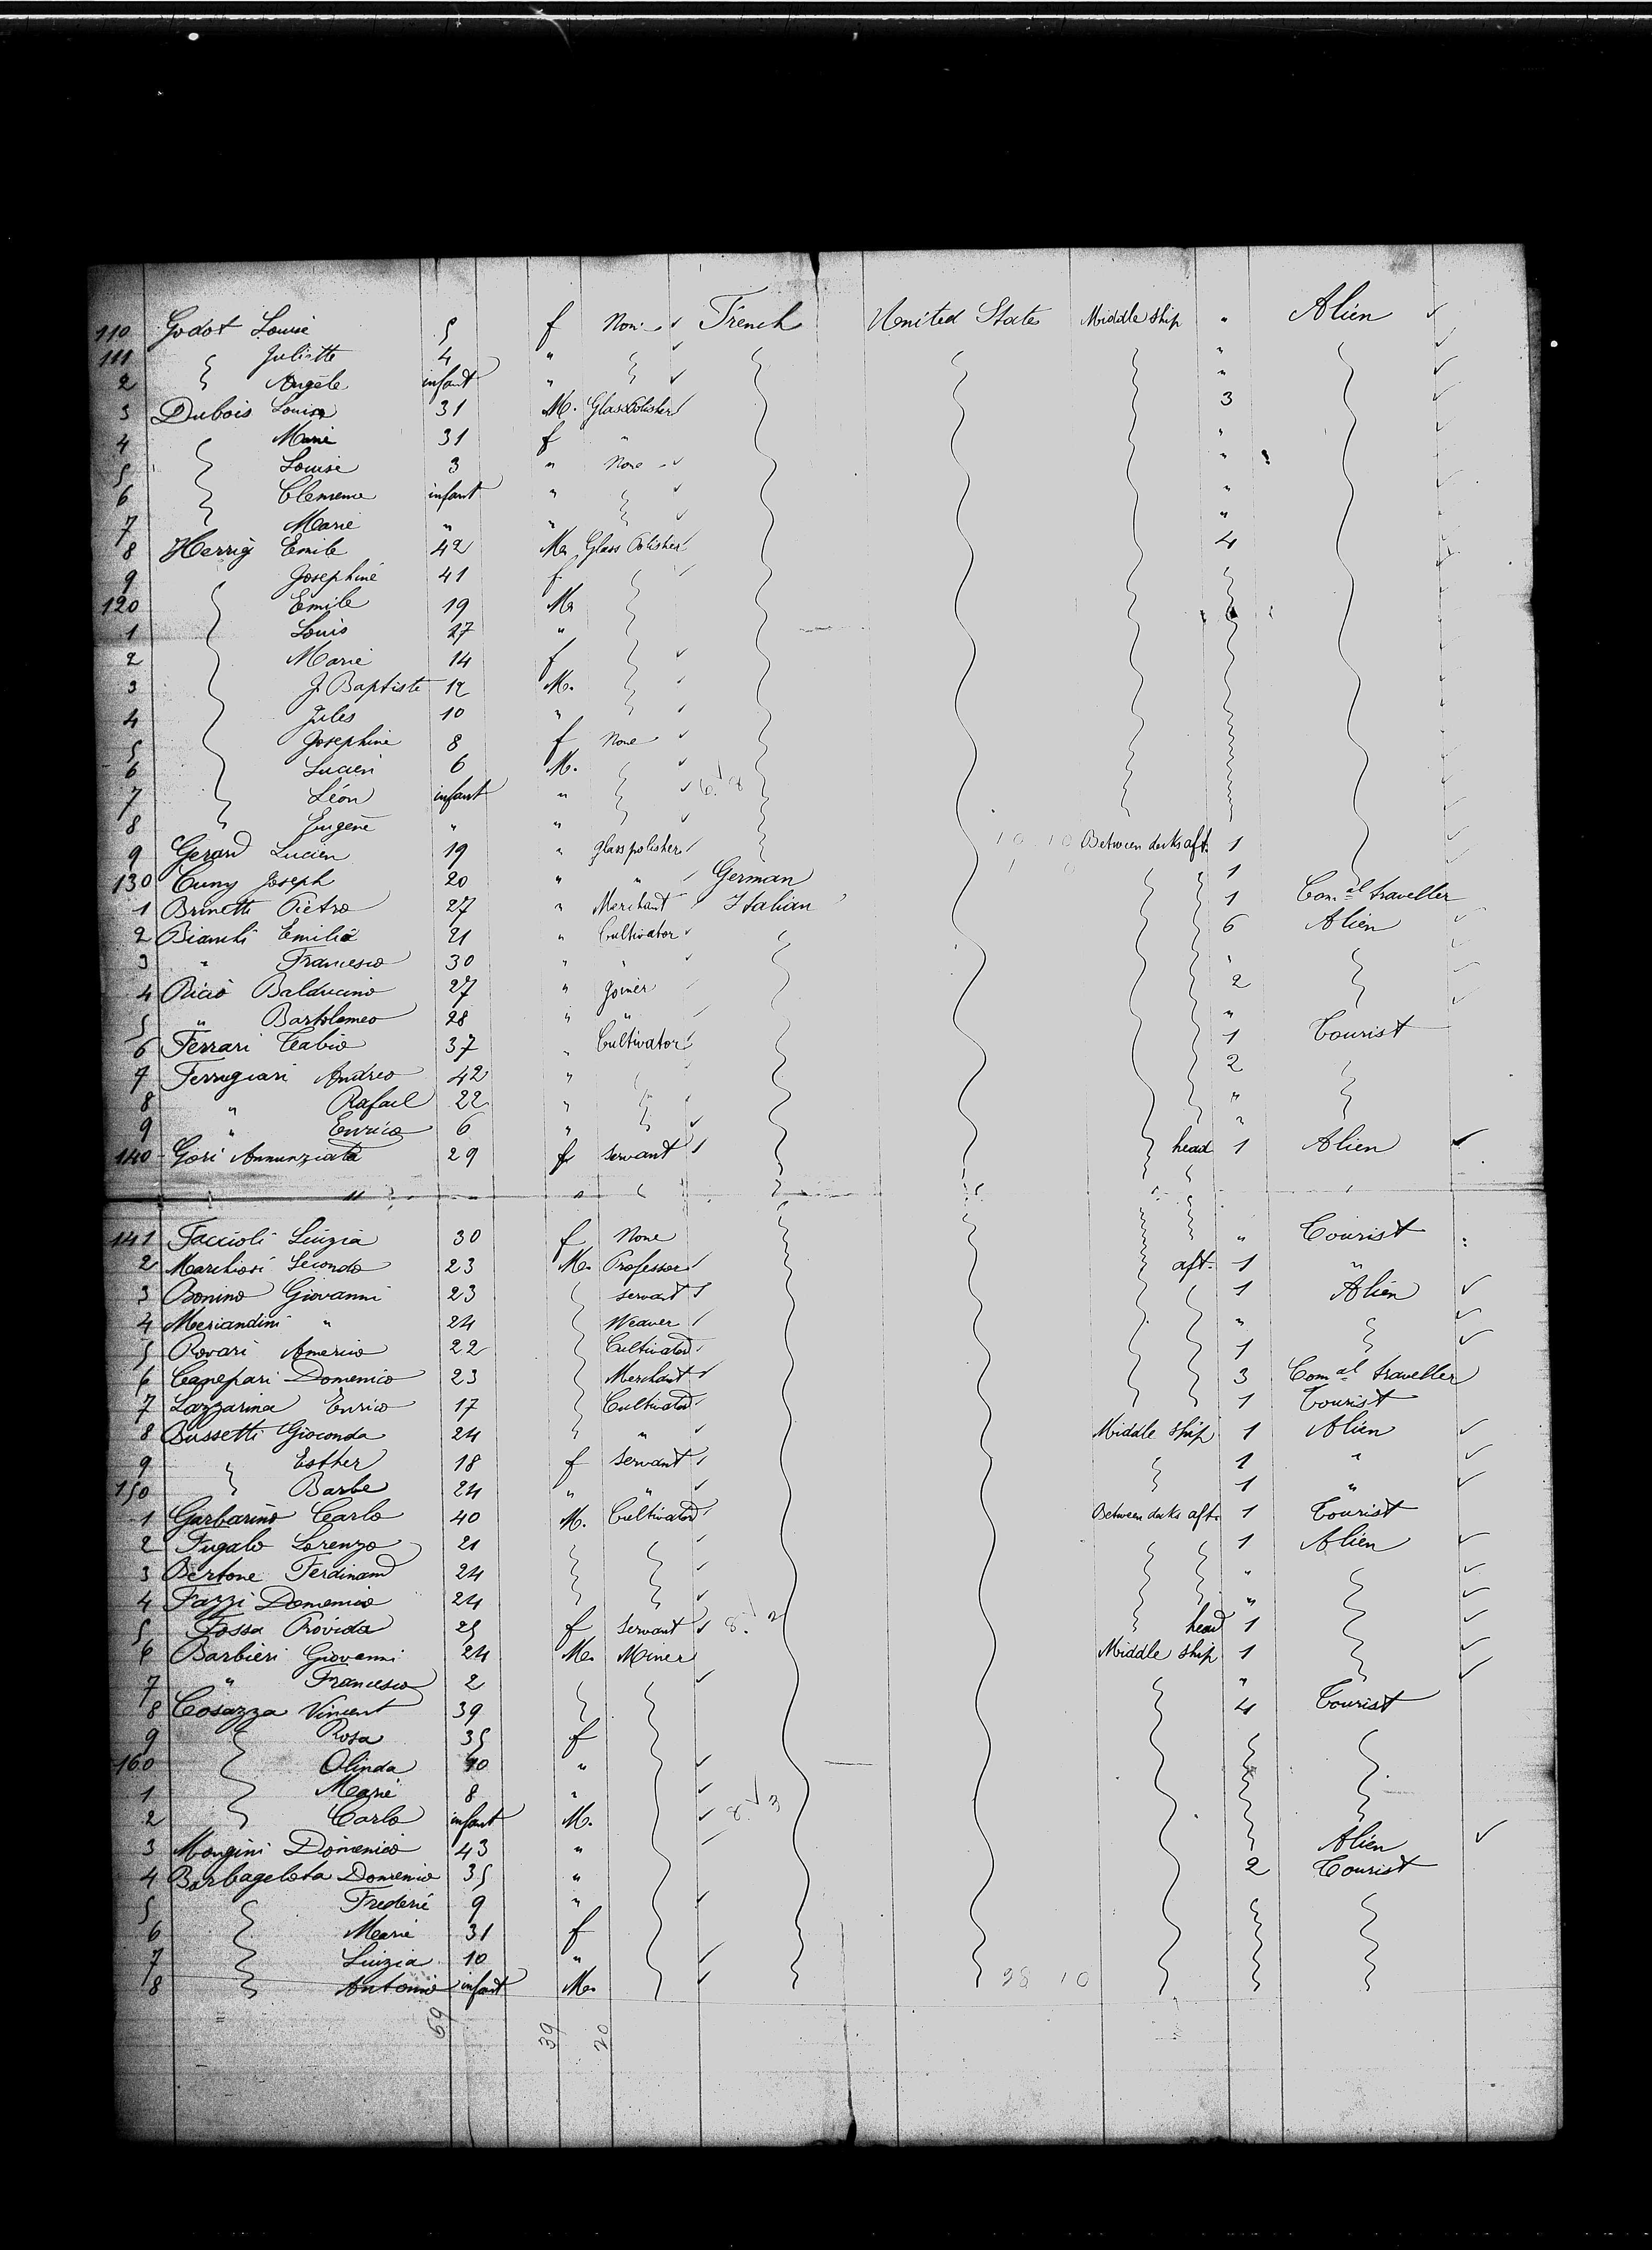 110 Godot Louise 5 f None French United States Middle ship " Alien
111 Juliette 4 " "
2 Angèle infant " "
3 Dubois Louis 31 M. Glass Polisher 3
4 Marie 31 f " "
5 Louise 3 " None "
6 Clemence infant " "
7 Marie " " "
8 Herrig Emile 42 M. Glass Polisher 4
9 Josephine 41 f
120 Emile 19 M.
1 Louis 27 "
2 Marie 14 f
3 J. Baptiste 12 M.
4 Jules 10 "
5 Josephine 8 f None
6 Lucien 6 M.
7 Léon infant "
8 Eugène " "
9 Gerard Lucien 19 " glass polisher Between decks aft. 1
130 Cuny Joseph 20 " " German 1
1 Brinetti Pietro 27 " Merchant Italian 1 Com.al traveller
2 Bianchi Emilio 21 " Cultivator 6 Alien
3 " Francesco 30 " " "
4 Ricio Balducino 27 " Joiner 2
5 " Bartolomeo 28 " " "
6 Ferrari 37 " Cultivator 1 Tourist
7 Ferrugiari Andreo 42 " 2
8 " Rafael 22 " "
9 " Enrico 6 " "
140 Gori Annunziata 29 f servant head 1 Alien
"
141 Faccioli Luizia 30 f None " Tourist
2 Marchiori Secondo 23 M. Professor aft. 1 "
3 Bonino Giovanni 23 servant 1 Alien
4 " 24 Weaver "
5 Rovari Americo 22 Cultivator 1
6 Canepari Domenico 23 Merchant 3 Com.al traveller
7 Lazzarina Enrico 17 Cultivator 1 Tourist
8 Bussetti Gioconda 24 " Middle ship 1 Alien
9 Esther 18 f Servant 1 "
150 Barbe 24 " " 1 "
1 Garbarino Carlo 40 M. Cultivator Between decks aft. 1 Tourist
2 Fugalo Lorenzo 21 1 Alien
3 Bertone Ferdinand 24 "
4 Fazzi Domenico 24 "
5 Fossa Provida 25 f Servant head 1
6 Barbieri Giovanni 24 M. Miner Middle ship 1
7 " Francesco 2 "
8 Cosazza Vincent 39 4 Tourist
9 Rosa 35 f
160 Olinda 10 "
1 Marie 8 "
2 Carlo infant M.
3 Mongini Domenico 43 " Alien
4 Barbagelata Domenico 35 " 2 Tourist
5 Frederic 9 "
6 Marie 31 f
7 Luizia 10 "
8 Antonio infant M. 38 10
69 39 20